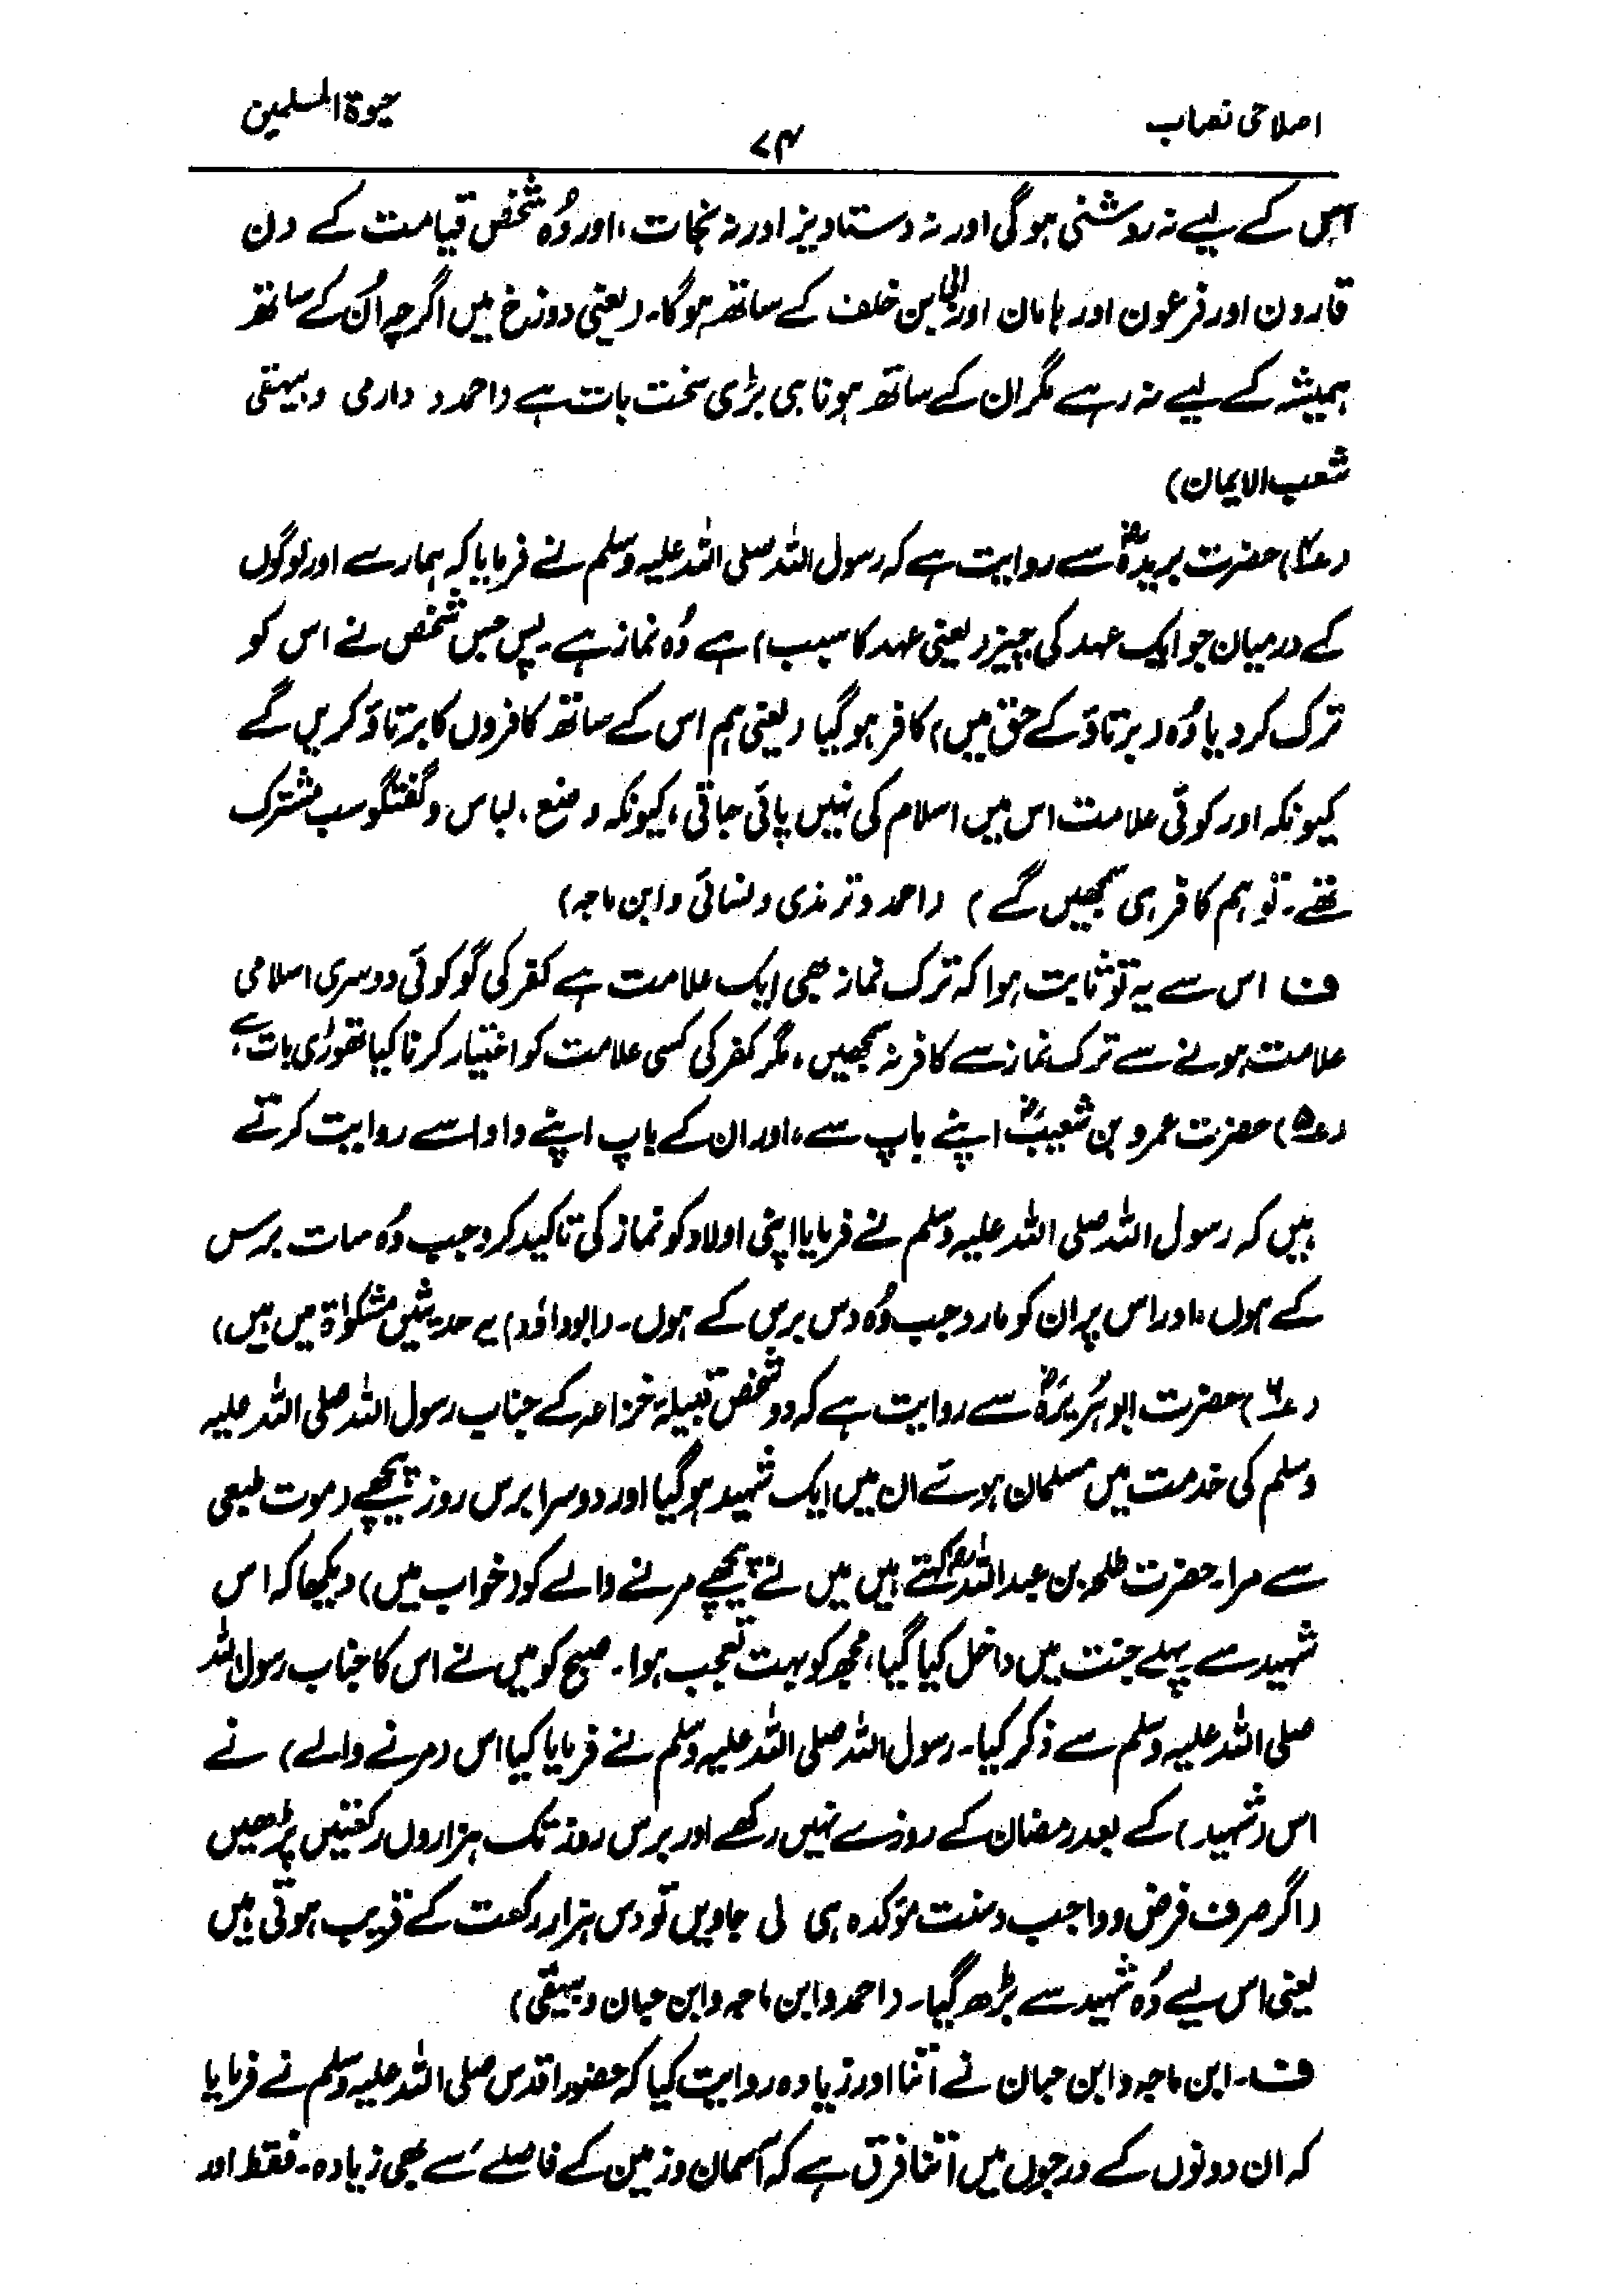 اصلاحی نصاب
۷۴
حیوۃ المسلمین
اس کے لیے نہ روشنی ہوگی اور نہ دستاویز اور نہ نجات، اور وُہ شخص قیامت کے دن
قارون اور فرعون اور ہامان اور ابی بن خلف کے ساتھ ہوگا۔ (یعنی دوزخ میں اگرچہ اُن کے ساتھ
ہمیشہ کے لیے نہ رہے مگر ان کے ساتھ ہونا ہی بڑی سخت بات ہے (احمد و دارمی و بیہقی
شعب الایمان)
(۴) حضرت بریدہؓ سے روایت ہے کہ رسول اللہ صلی اللہ علیہ وسلم نے فرمایا کہ ہمارے اور لوگوں
کے درمیان جو ایک عہد کی چیز (یعنی عہد کا سبب) ہے وُہ نماز ہے۔ پس جس شخص نے اس کو
ترک کر دیا وُہ (برتاؤ کے حق میں) کافر ہو گیا (یعنی ہم اس کے ساتھ کافروں کا برتاؤ کریں گے
کیونکہ اور کوئی علامت اس میں اسلام کی نہیں پائی جاتی، کیونکہ وضع، لباس و گفتگو سب مشترک
تھے۔ تو ہم کافر ہی سمجھیں گے) (احمد و ترمذی و نسائی و ابن ماجہ)
ف اس سے یہ تو ثابت ہوا کہ ترک نماز بھی ایک علامت ہے کفر کی گو کوئی دوسری اسلامی
علامت ہونے سے ترک نماز سے کافر نہ سمجھیں، مگر کفر کی کسی علامت کو اختیار کرنا کیا تھوڑی بات ہے،
(۵) حضرت عمرو بن شعیبؓ اپنے باپ سے، اور ان کے باپ اپنے دادا سے روایت کرتے
ہیں کہ رسول اللہ صلی اللہ علیہ وسلم نے فرمایا اپنی اولاد کو نماز کی تاکید کرو جب وُہ سات برس
کے ہوں، اور اس پر ان کو مارو جب وُہ دس برس کے ہوں۔ (ابوداؤد) یہ حدیثیں مشکوٰۃ میں ہیں)
(۶) حضرت ابوہُریرہؓ سے روایت ہے کہ دو شخص قبیلۂ خزاعہ کے جناب رسول اللہ صلی اللہ علیہ
وسلم کی خدمت میں مسلمان ہوئے ان میں ایک شہید ہو گیا اور دوسرا برس روز پیچھے (موت طبعی
سے مرا۔ حضرت طلحہ بن عبداللہؓ کہتے ہیں میں نے پیچھے مرنے والے کو (خواب میں) دیکھا کہ اس
شہید سے پہلے جنت میں داخل کیا گیا، مجھ کو بہت تعجب ہوا۔ صبح کو میں نے اس کا جناب رسول اللہ
صلی اللہ علیہ وسلم سے ذکر کیا۔ رسول اللہ صلی اللہ علیہ وسلم نے فرمایا کیا اس (مرنے والے) نے
اس (شہید) کے بعد رمضان کے روزے نہیں رکھے اور برس روز تک ہزاروں رکعتیں پڑھیں
(اگر صرف فرض و واجب و سنت مؤکدہ ہی لی جاویں تو دس ہزار رکعت کے قریب ہوتی ہیں
یعنی اس لیے وُہ شہید سے بڑھ گیا۔ (احمد و ابن ماجہ و ابن حبان و بیہقی)
ف۔ ابن ماجہ و ابن حبان نے اتنا اور زیادہ روایت کیا کہ حضور اقدس صلی اللہ علیہ وسلم نے فرمایا
کہ ان دونوں کے درجوں میں اتنا فرق ہے کہ آسمان و زمین کے فاصلے سے بھی زیادہ۔ فقط اور